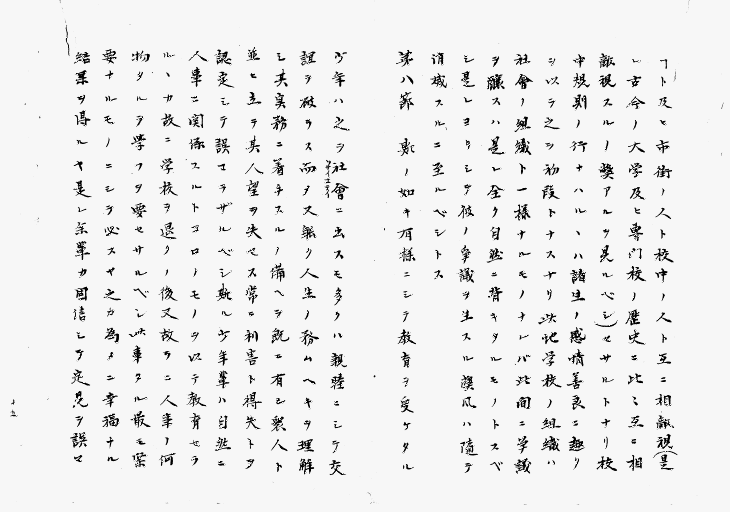 コト及ヒ市街ノ人ト校中ノ人ト互ニ相敵視(是
レ古今ノ大学及ヒ専門校ノ歴史ニ比々互ニ相
敵視スルノ弊アルヲ見ルベシ)セサルトナリ校
中規則ノ行ナハルヽハ諸生ノ感情善良ニ趣リ
シヲ以テ之ヲ初段トナスナリ此学校ノ組織ハ
社會ノ組織ト一様ナルモノナレバ此間ニ学議
ヲ醸スハ是レ全ク自然ニ背キタルモノトスベ
シ是レヨリシテ彼ノ争議ヲ生スル弊風ハ随テ
消滅スルニ至ルベシトス
第八節 斯ノ如キ有様ニシテ教育ヲ受ケタル
少年ハ之ヲ社會ニ出スモ多クハ親睦ニシテ交
誼ヲ破ラス而ヲス無ク人生ノ務ムヘキヲ理解
シ其実務ニ着手スルノ備ヘヲ既ニ有シ衆人ト
並ヒ立テ其人望ヲ失セス常ニ利害ト得失トヲ
認定シテ誤マラザルベシ斯ル少年輩ハ自然ニ
人事ニ関係スルトコロノモノヲ以テ教育セラ
ルヽカ故ニ学校ヲ退クノ後又故ラニ人事ノ何
物タルヲ学フヲ要セサルベシ此事タル最モ緊
要ナルモノニシテ必スヤ之カ為メニ幸福ナル
結果ヲ得ルヤ是レ余輩カ固信シテ定見ヲ誤マ
十五